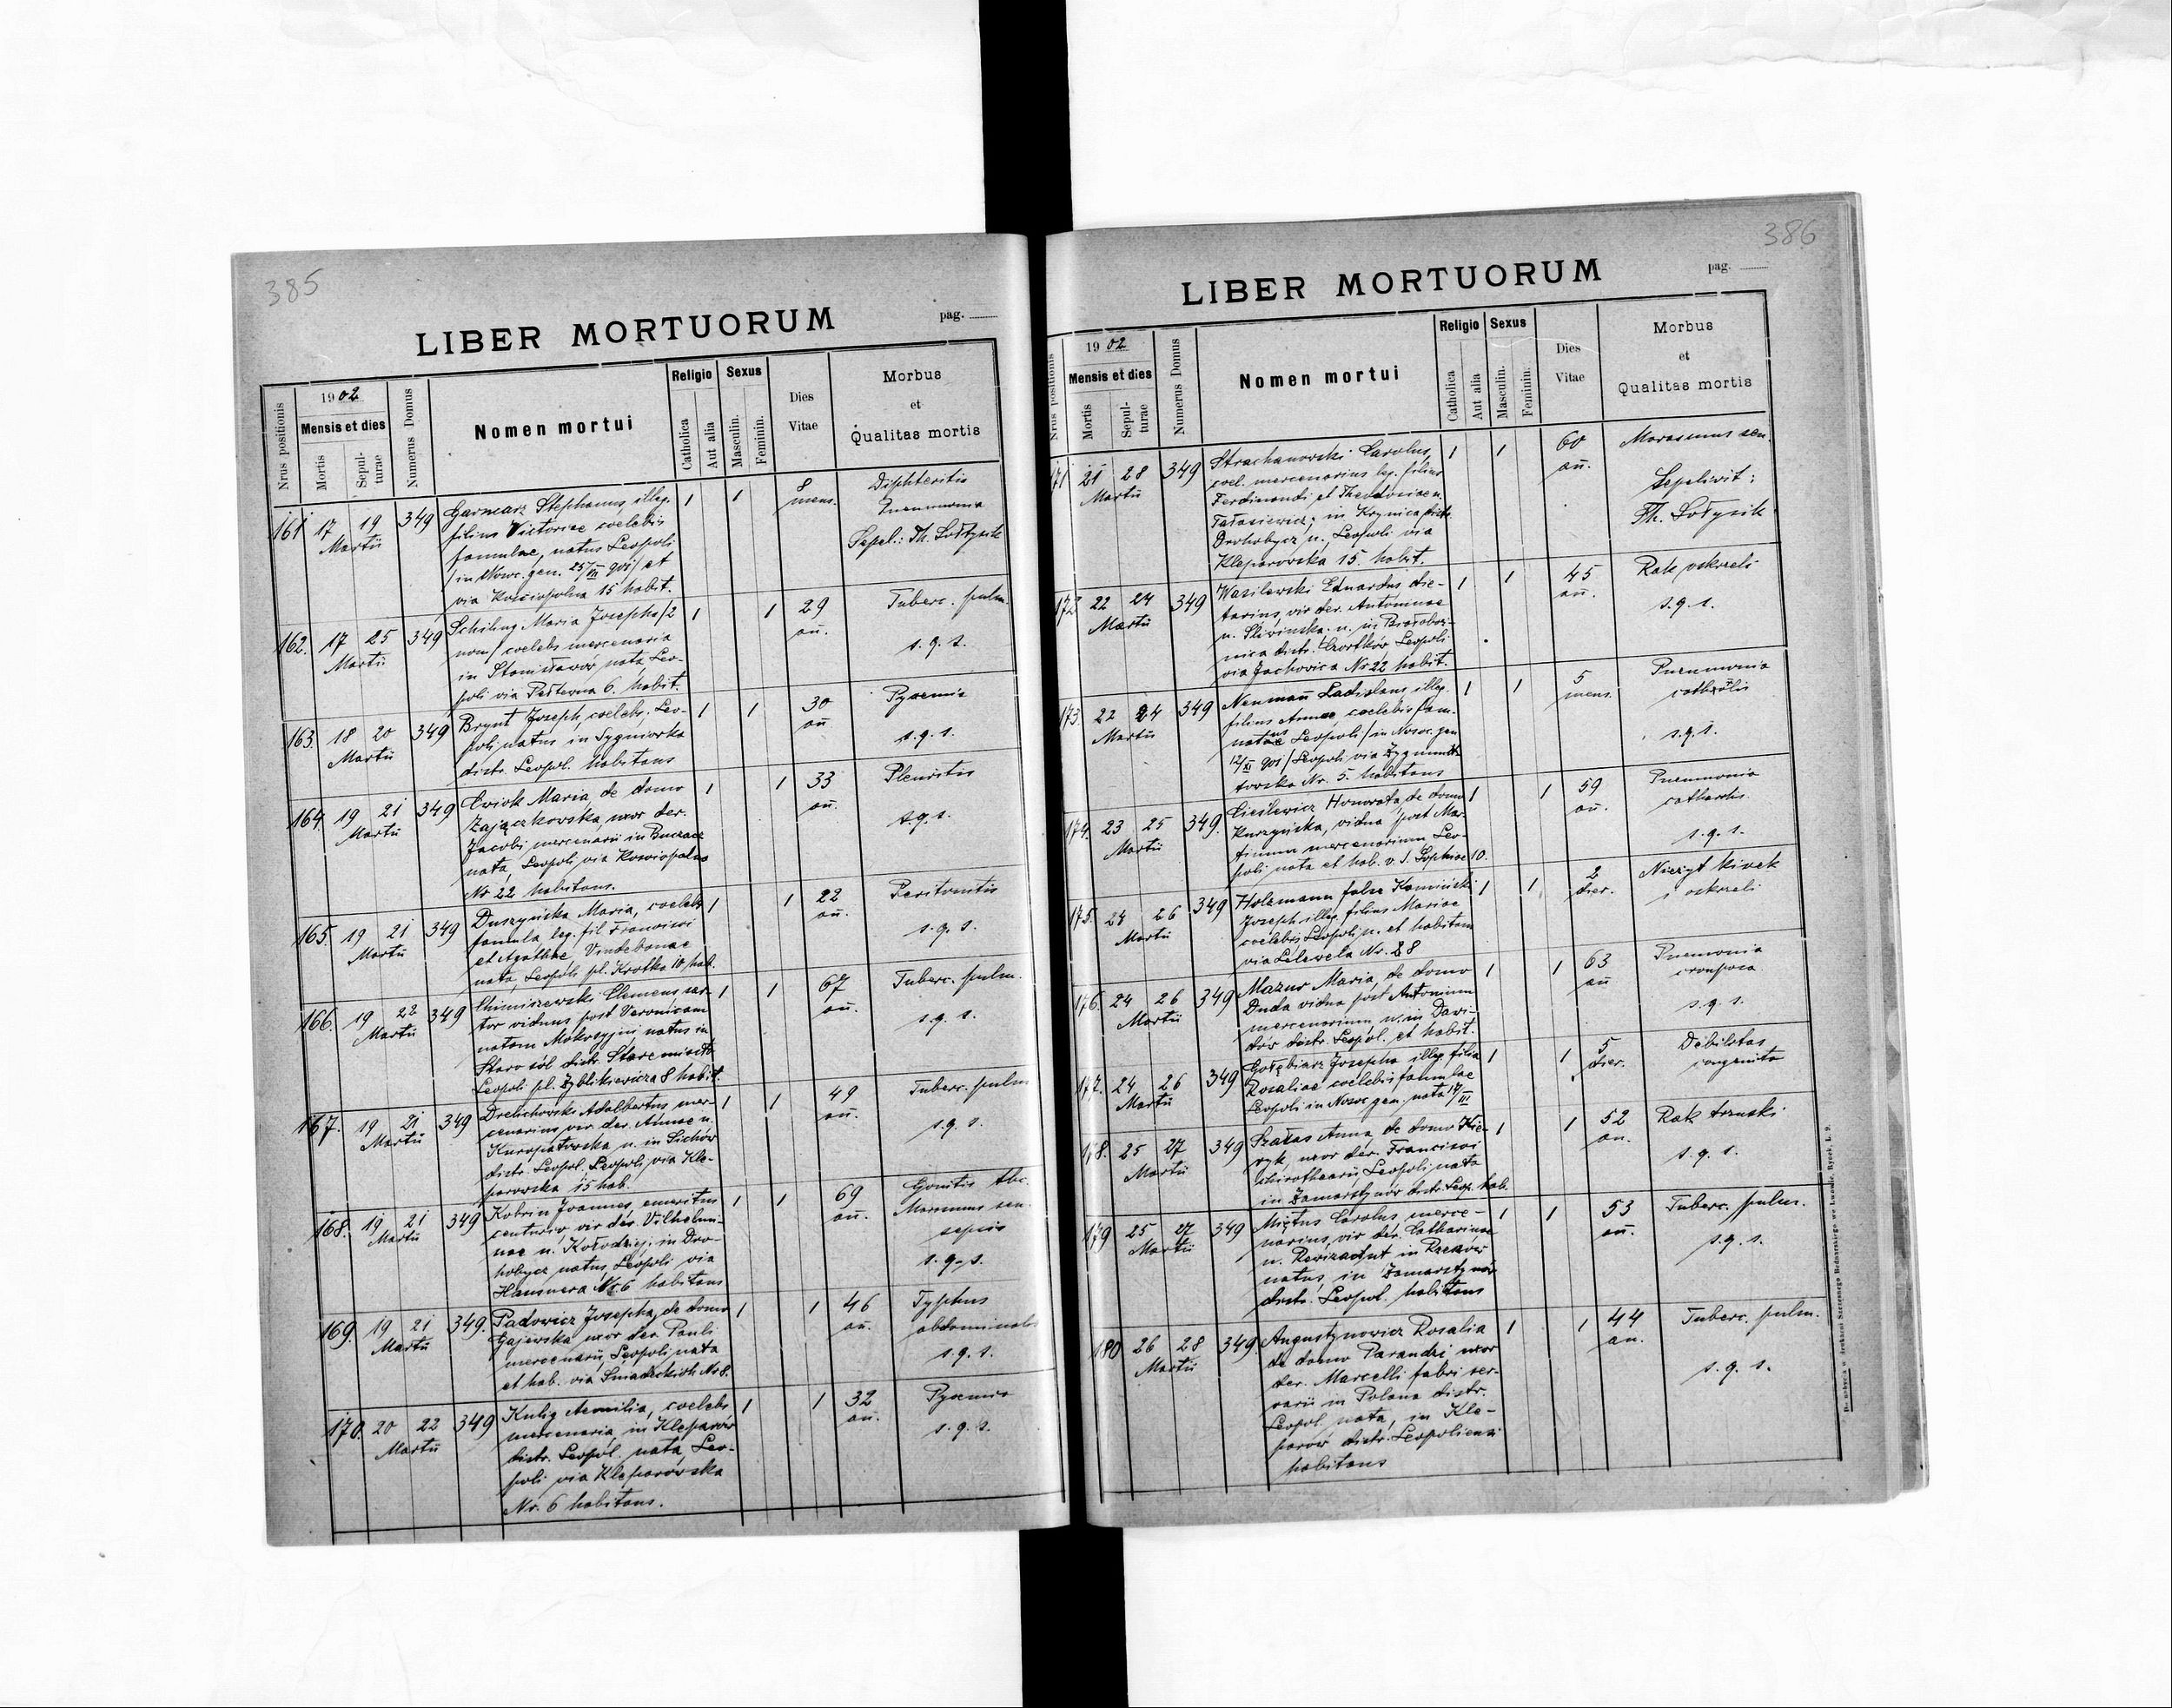 385
LIBER MORTUORUM
pag.
Nrus positionis
1902
Mensis et dies
Mortis
Sepulturae
Numerus Domus
Nomen mortui
Religio
Catholica
Aut alia
Sexus
Masculin.
Feminin.
Dies Vitae
Morbus
et
Qualitas mortis
161 17 19 Martii 349 1 1 8 mens.
Garncarz Stephanus, illeg.
filius Victoriae coelebis
famulae, natus Leopoli
/in Nosoc. gen. 25/VI 901/ et
via Kościopolna 15 habit.
Diphteritis
Pneumonia
Sepel.: Th. Sołtysik
162. 17 25 Martii 349 1 1 29 an̄.
Schiling Maria Josepha /2
nom/ coelebs mercenaria
in Stanisławów nata, Leo-
poli via Pełtewna 6. habit.
Tuberc. pulm.
s. q. s.
163. 18 20 Martii 349 1 1 30 an̄
Brynt Joseph, coelebs, Leo-
poli natus in Sygniówka
distr. Leopol. habitans
Pyaemia
s. q. s.
164. 19 21 Martii 349 1 1 33 an̄.
Ćwiok Maria, de domo
Zajączkowska, uxor der.
Jacobi mercenarii in Buczacz
nata, Leopoli, via Kościopolna
Nr 22 habitans.
Pleuritis
s. q. s.
165. 19 21 Martii 349 1 1 22 an̄.
Duszyńska Maria, coelebs
famula, leg. fil. Francisci
et Agathae, Vindobonae
nata, Leopoli pl. Krótka 10 hab.
Peritonitis
s. q. s.
166. 19 22 Martii 349 1 1 67 an̄.
Chimiszewski Clemens sar-
tor viduus post Veronicam
natam Mokrzycki, natus in
Stara sól distr. Staremiasto
Leopoli pl. Zyblikiewicza 8 habit.
Tuberc. pulm.
s. q. s.
167. 19 21 Martii 349 1 1 49 an̄.
Drelichowski Adalbertus mer-
cenarius vir der. Annae n.
Kuropatwska n. in Sichów
distr. Leopol. Leopoli, via Kle-
parowska 15 hab.
Tuberc. pulm
s. q. s.
168. 19 21 Martii 349 1 1 69 an̄.
Kobrin Joannes, emeritus
centurio vir der. Vilhelmi-
nae n. Kołodziej; in Dro-
hobycz natus, Leopoli via
Hausnera Nr. 6 habitans
Gonitis tbc.
Marasmus sen.
sepsis
s. q. s.
169. 19 21 Martii 349. 1 1 46 an̄.
Padowicz Josepha, de domo
Gajewska uxor der. Pauli
mercenarii, Leopoli nata
et hab. via Śniadeckich Nr 8.
Typhus
abdominalis
s. q. s.
170. 20 22 Martii 349 1 1 32 an̄.
Kulig Aemilia, coelebs
mercenaria, in Kleparów
distr. Leopol. nata, Leo-
poli via Kleparowska
Nr. 6 habitans.
Pyaemia
s. q. s.
386
LIBER MORTUORUM
pag.
Nrus positionis
1902
Mensis et dies
Mortis
Sepulturae
Numerus Domus
Nomen mortui
Religio
Catholica
Aut alia
Sexus
Masculin.
Feminin.
Dies Vitae
Morbus
et
Qualitas mortis
171 21 28 Martii 349 1 1 60 an̄.
Strachanowski Carolus,
coel. mercenarius leg. filius
Ferdinandi et Theodosiae n.
Tarasiewicz; in Krynica distr.
Drohobycz n., Leopoli via
Kleparowska 15. habit.
Marasmus sen.
Sepelivit:
Th. Sołtysik
172. 22 24 Martii 349 1 1 45 an̄.
Wasilewski Eduardus die-
tarius, vir der. Antoninae
n. Śliwinska. n. in
distr. Czortków, Leopoli
via Jachowicza Nr 22 habit.
Rak oskrzeli
s. q. s.
173. 22 24 Martii 349 1 1 5 mens.
Neuman̄ Ladislaus, illeg.
filius Annae, coelebis fam.
natus Leopoli / in Nosoc. gen
12/XI 901 / Leopoli via Zygmun-
towska Nr. 5. habitans
Pneumonia
s. q. s.
174. 23 25 Martii 349. 1 1 59 an̄.
Cieślewicz Honorata, de domo
Kurzyńska, vidua post Mar-
tinum mercenarium Leo-
poli nata et hab. v. S. Sophiae 10.
Pneumonia
catharrh.
s. q. s.
175. 24 26 Martii 349 1 1 2 dier.
Holzmann false Kamiński
Joseph illeg. filius Mariae
coelebis, Leopoli n. et habitans
via Lelewela Nr. 28
Nieżyt kiszek
i oskrzeli
176. 24 26 Martii 349 1 1 63 an̄
Mazur Maria, de domo
Duda vidua post Antonium
mercenarium, n. in Dawi-
dów distr. Leopol. et habit.
Pneumonia
crouposa
s. q. s.
177. 24 26 Martii 349 1 1 5 dier.
Gołębiarz Josepha illeg. filia
Rosaliae coelebis famulae
Leopoli in Nosoc. gen. nata 19/III
Debilitas
congenita
178. 25 27 Martii 349 1 1 52 an.
Szałas Anna, de domo Kie-
ryk, uxor der. Francisci
chirothecarii Leopoli nata
in Zamarstynów distr. Leop. hab.
Rak trzustki
s. q. s.
179 25 27 Martii 349 1 1 53 an̄.
Miętus Carolus merce-
narius, vir der. Catharinae
n. in Rzeszów
natus, in Zamarstynów
distr. Leopol. habitans
Tuberc. pulm.
s. q. s.
180 26 28 Martii 349. 1 1 44 an.
Augustynowicz Rosalia
de domo Parandzi uxor
der. Marcelli fabri ser-
rarii in Polana distr.
Leopol. nata, in Kle-
parów distr. Leopoliensi
habitans
Tuberc. pulm.
s. q. s.